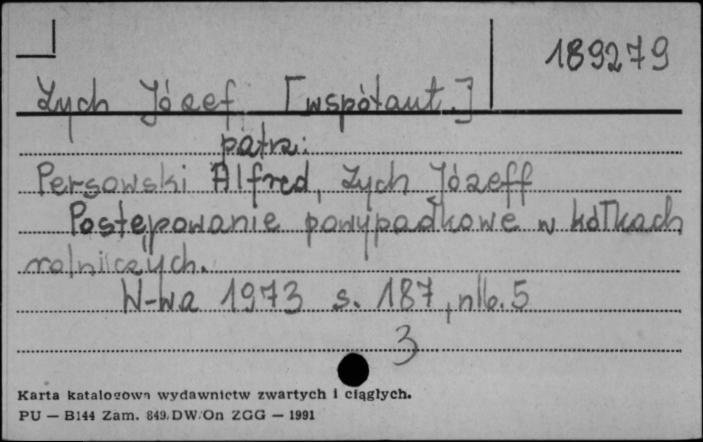 189279
Zych Józef [współaut.]
patrz:
Persowski Alfred, Zych Józeff
Postępowanie powypadkowe w kółkach
rolniczych.
W-wa 1973 s. 187, nlb. 5
3
Karta katalogowa wydawnictw zwartych i ciągłych.
PU — B144 Zam. 849/DW/On ZGG — 1991